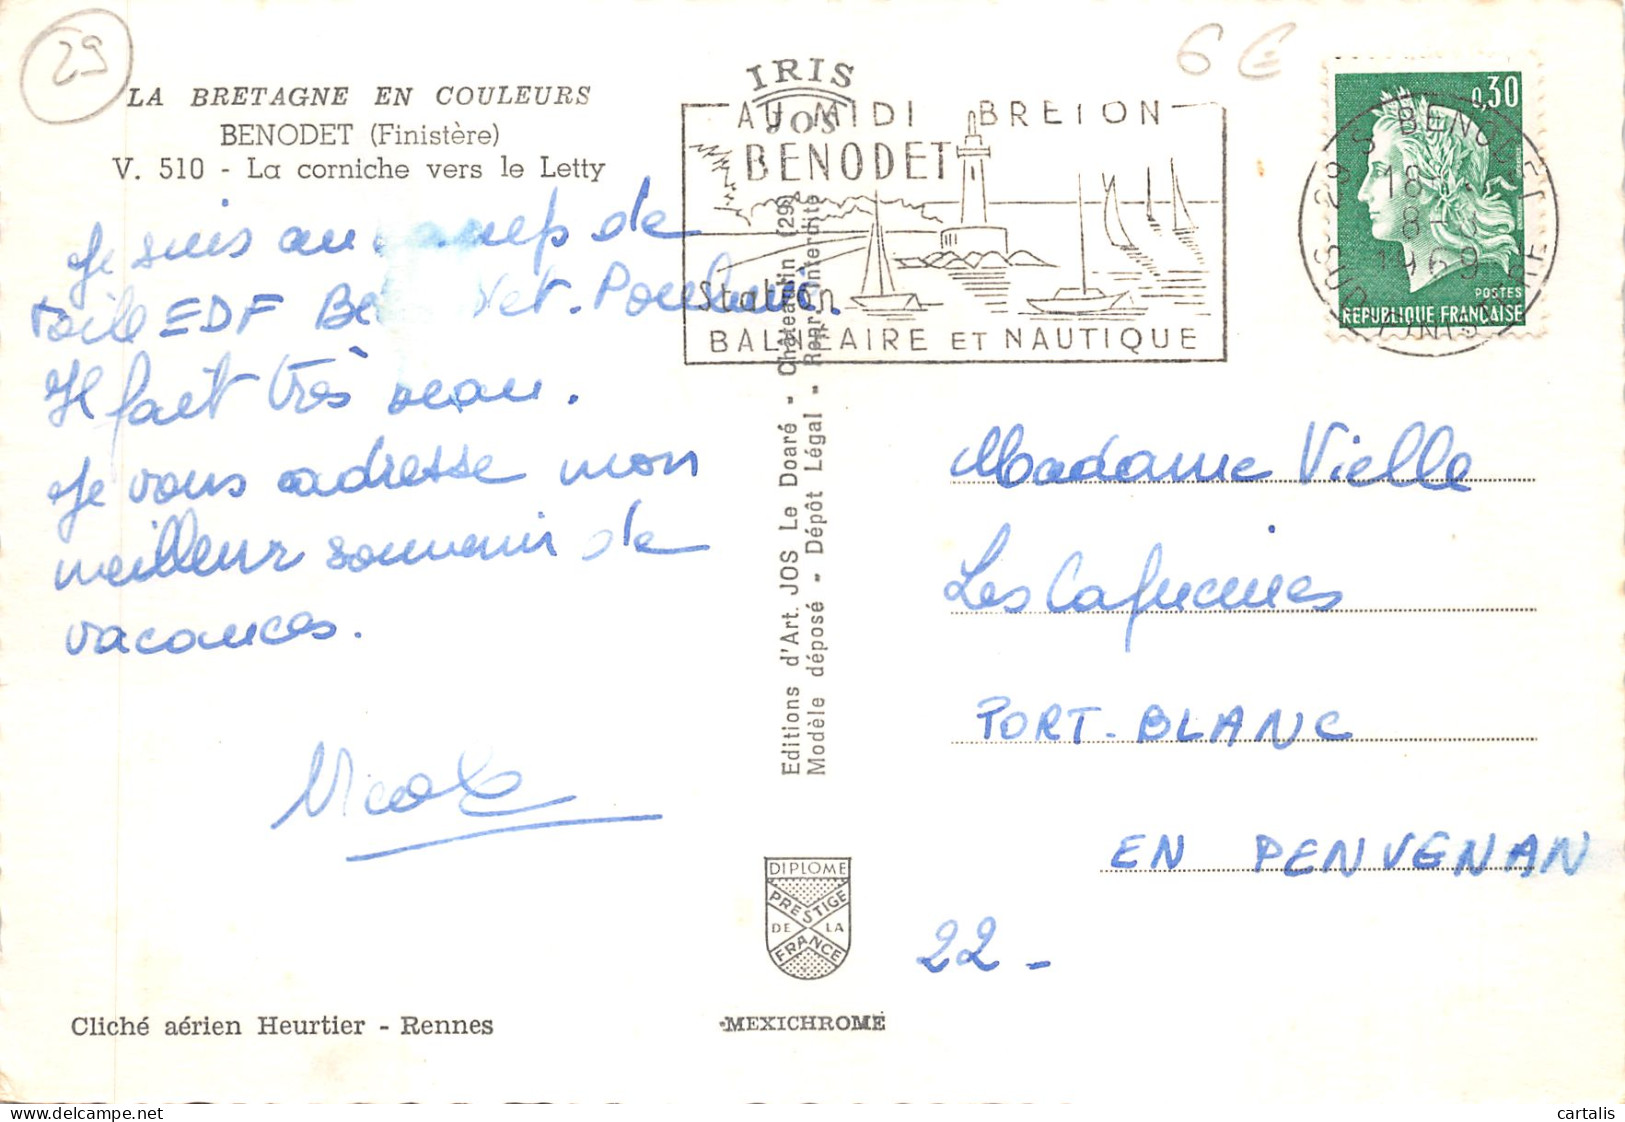 29
6 €
LA BRETAGNE EN COULEURS
BENODET (Finistère)
V. 510 - La corniche vers le Letty
Je suis au camp de
toile EDF
Il fait très beau.
Je vous adresse mon
meilleur souvenir de
vacances.
Nicole
Cliché aérien Heurtier - Rennes
IRIS
JOS
AU MIDI BRETON
BENODET
Station
BALNEAIRE ET NAUTIQUE
Editions d'Art JOS Le Doaré - Châteaulin (29)
Modèle déposé - Dépôt Légal - Repr. interdite
DIPLOME
PRESTIGE
DE LA
FRANCE
MEXICHROME
0,30
POSTES
REPUBLIQUE FRANÇAISE
29 S BENODET
18
8-8
1969
FINIS
Madame Vielle
Les Capucines
PORT-BLANC
EN PENVENAN
22-
cartalis